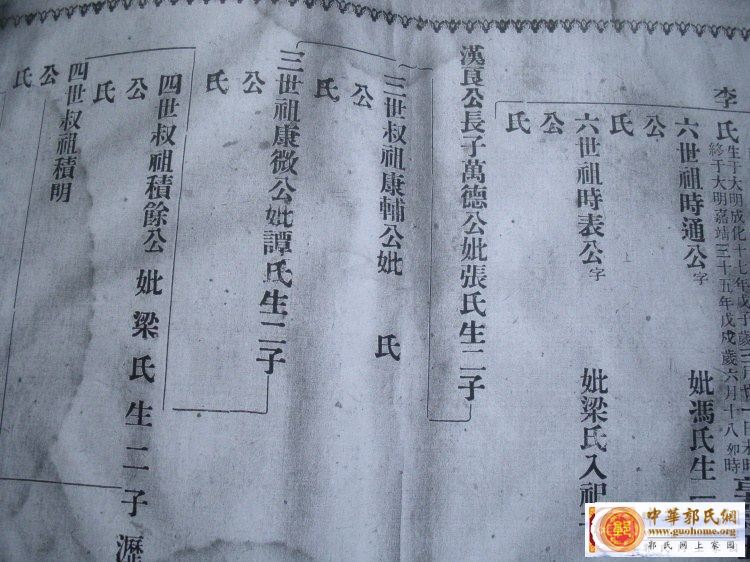 李氏生于大明成化十七年
終于大明嘉靖三十五年戊戌歲六月十八卯時
六世祖時通公字 妣馮氏生
公 氏
六世祖時表公字 妣梁氏入祀
公 氏
漢良公長子萬德公妣張氏生二子
三世叔祖康輔公妣 氏
公 氏
三世祖康微公妣譚氏生二子
公 氏
四世叔祖積餘公妣梁氏生二子
公 氏
四世叔祖積明
公 氏
中華郭氏網
www.guohome.org
郭氏網上家園